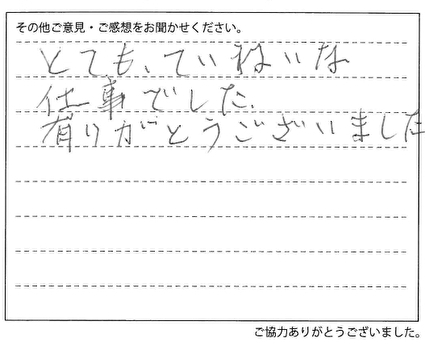 その他ご意見・ご感想をお聞かせください。
とても、ていねいな
仕事でした。
有りがとうございました
ご協力ありがとうございました。